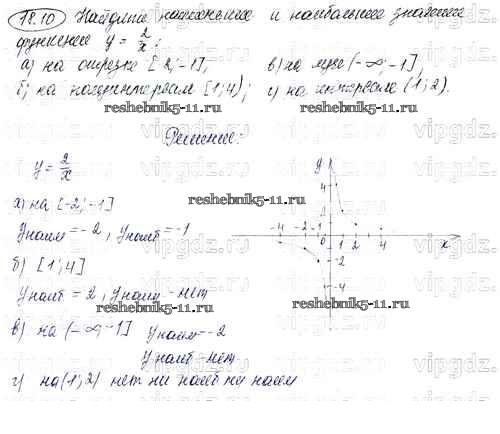 18.10 Найдите наименьшее и наибольшее значения
функции y = 2/x:
а) на отрезке [-2;-1]; в) на луче (-∞;-1];
б) на полуинтервале [1;4); г) на интервале (1;2).
reshebnik5-11.ru reshebnik5-11.ru
Решение:
y = 2/x
а) на [-2;-1]
yнаим = -2, yнаиб = -1
б) [1;4]
yнаиб = 2, yнаим - нет
в) на (-∞;-1] yнаим = -2
yнаиб - нет
г) на (1;2) нет ни наиб ни наим
y
4
-4 -2 -1 0 1 2 4 x
-2
-4
reshebnik5-11.ru
reshebnik5-11.ru
reshebnik5-11.ru
vipgdz.ru
vipgdz.ru
vipgdz.ru
vipgdz.ru